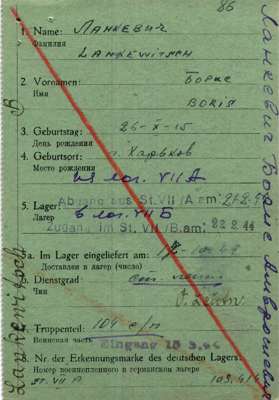 86
1. Name: Ланкевич
Фамилия
Lankewitsch
2. Vornamen: Борис
Имя
Boris
3. Geburtstag: 26-X-15
День рождения
4. Geburtsort: г. Харьков
Место рождения
из лаг. VII А
Abgang aus St.VII/A am: 21.2.44
5. Lager
Лагерь
в лаг. VII Б
Zugang im St. VII/B am: 22.2.44
a. Im Lager eingeliefert am:
Доставлен в лагерь (число)
Dienstgrad
Чин
Truppenteil: 104 с/п
Воинская часть
Eingang 18 3.44
Nr der Erkennungsmarke des deutschen Lagers:
Номер военнопленного в германском лагере
Ланкевич Борис
Lankewitsch B